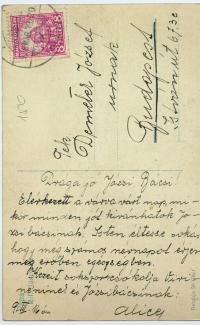 Tek.
Demeter József
urnak
Budapest
Drága jó Józsi Bácsi!
Elérkezett a várva várt nap, mi-
kor minden jót kivánhatok Jó-
zsi bácsinak. Isten éltesse soká
hogy még számos névnapot érjen
meg erőben egészségben.
Kezeit sokszor csókolja
néninek és Józsibácsinak:
Alice